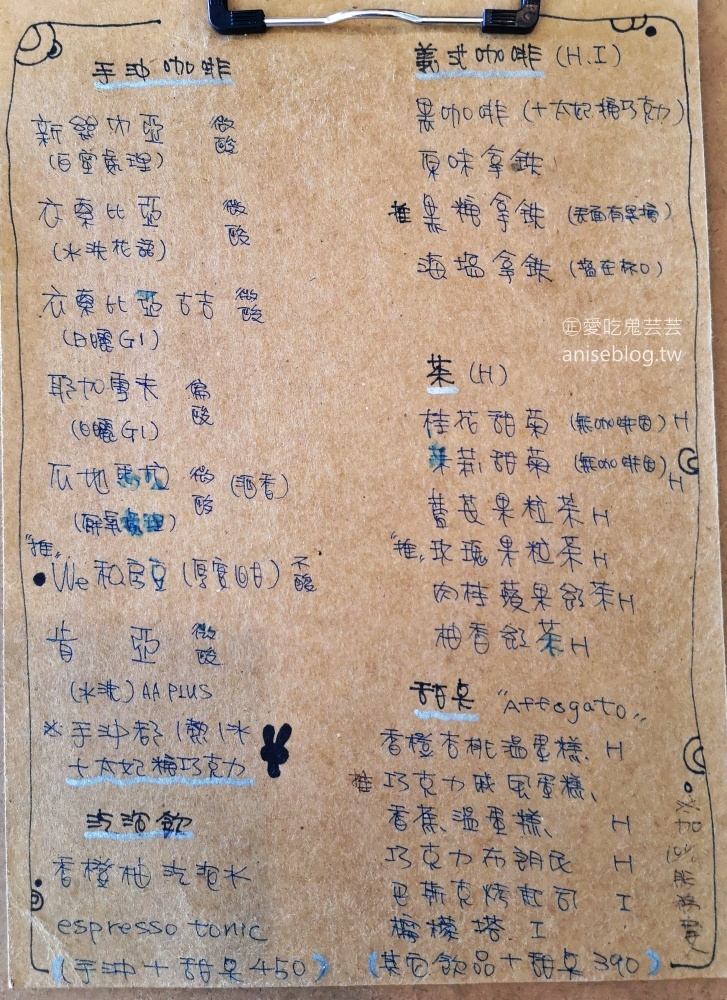 手沖咖啡
新幾內亞 微酸
(白蜜處理)
衣索比亞 微酸
(水洗花語)
衣索比亞古吉 微酸
(日曬G1)
耶加雪夫 偏酸
(日曬G1)
瓜地馬拉 微酸 (酒香)
(厭氧處理)
"推"
We私房豆(厚實回甘) 不酸
肯亞 微酸
(水洗) AA PLUS
※手沖都1熱1冰
+太妃糖巧克力
氣泡飲
香橙柚氣泡水
espresso tonic
(手沖+甜桌450)
義式咖啡 (H.I)
黑咖啡 (+太妃糖巧克力)
原味拿鉄
推 黑糖拿鉄 (表面有黑糖)
海塩拿鉄 (塩在杯口)
㊣愛吃鬼芸芸
aniseblog.tw
茶 (H)
桂花甜菊 (無咖啡因) H
茉莉甜菊 (無咖啡因) H
藍莓果粒茶 H
"推" 玫瑰果粒茶 H
肉桂蘋果 茶 H
柚香 茶 H
甜桌 "Affogato"
香橙杏桃溫蛋糕 H
推 巧克力戚風蛋糕、
香蕉溫蛋糕、 H
巧克力布朗尼 H
巴斯克烤起司 I
檸檬塔. I
(其自飲品+甜桌390)
※加10%服務費